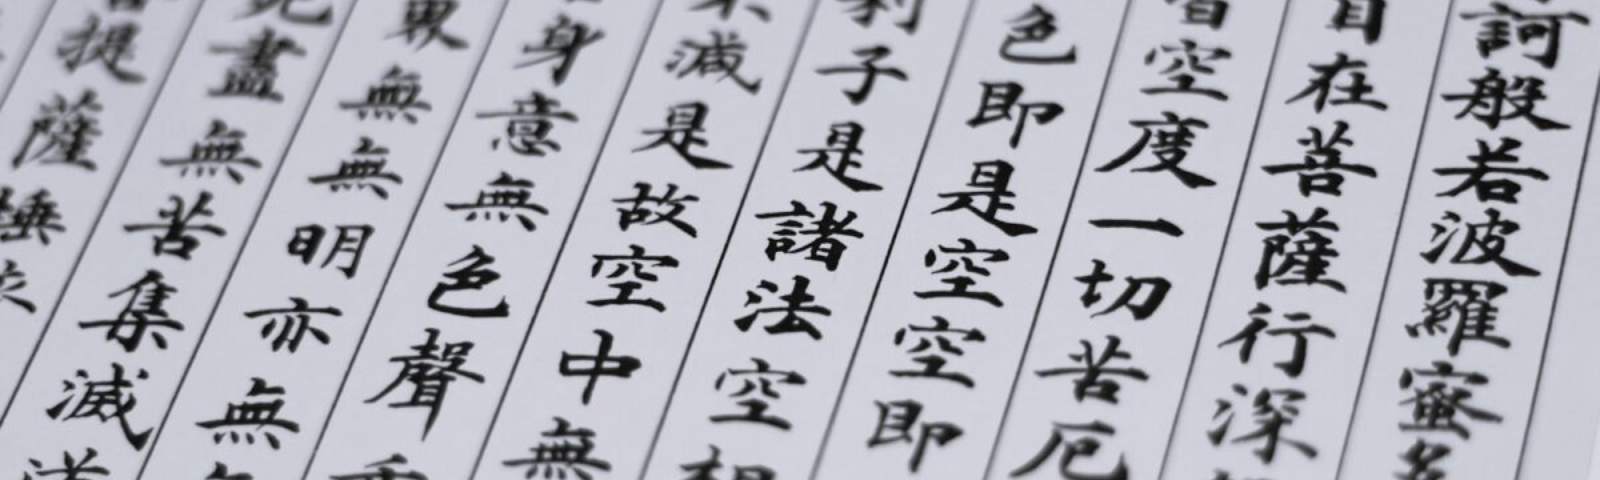 訶般若波羅蜜多
自在菩薩行深
皆空度一切苦厄
色即是空空即
利子是諸法空相
減是故空中無
身意無色聲香
界無無明亦無無
死盡無苦集滅道
提薩埵依